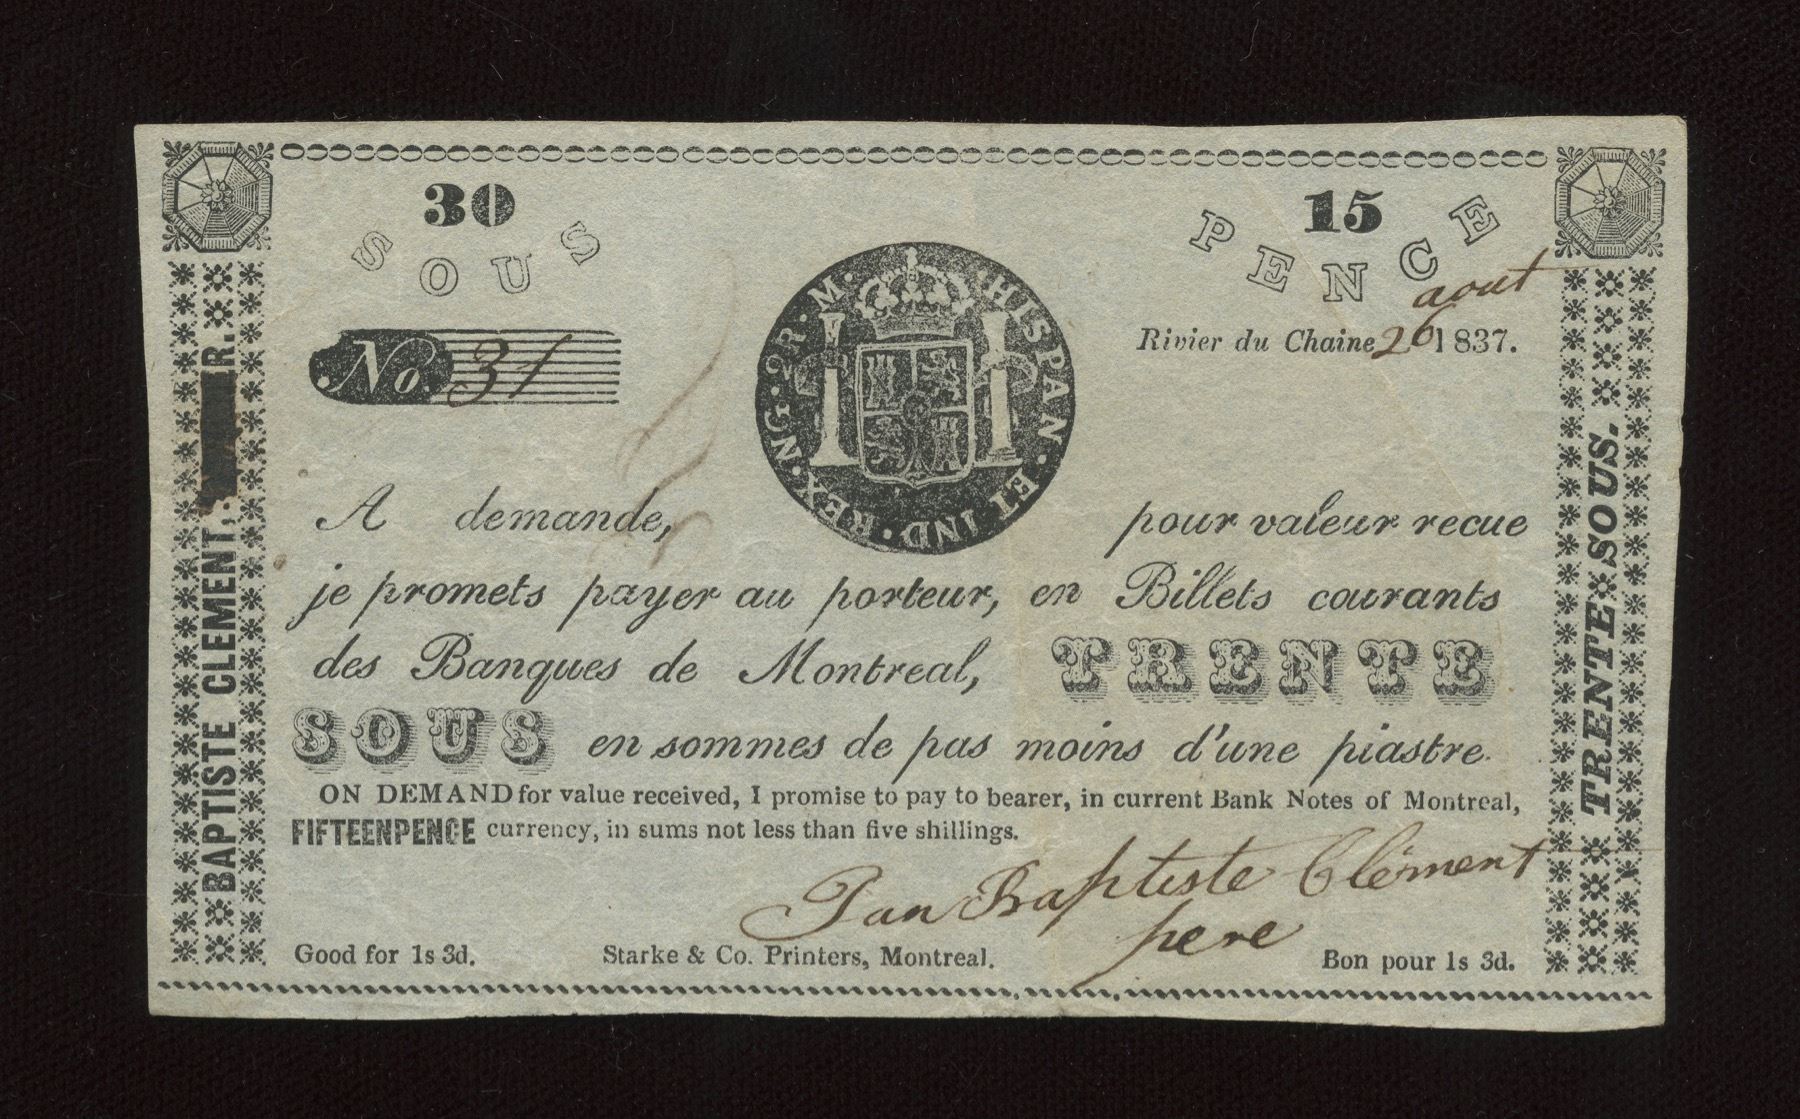 30 SOUS
15 PENCE
No. 31
HISPAN · ET IND · REX · NG · 2R · M ·
aout
Rivier du Chaine 26 1837.
A demande, pour valeur recue
je promets payer au porteur, en Billets courants
des Banques de Montreal, TRENTE
SOUS en sommes de pas moins d'une piastre.
ON DEMAND for value received, I promise to pay to bearer, in current Bank Notes of Montreal,
FIFTEENPENCE currency, in sums not less than five shillings.
Jan Baptiste Clément
pere
Good for 1s 3d. Starke & Co. Printers, Montreal. Bon pour 1s 3d.
BAPTISTE CLEMENT, R.
TRENTE SOUS.